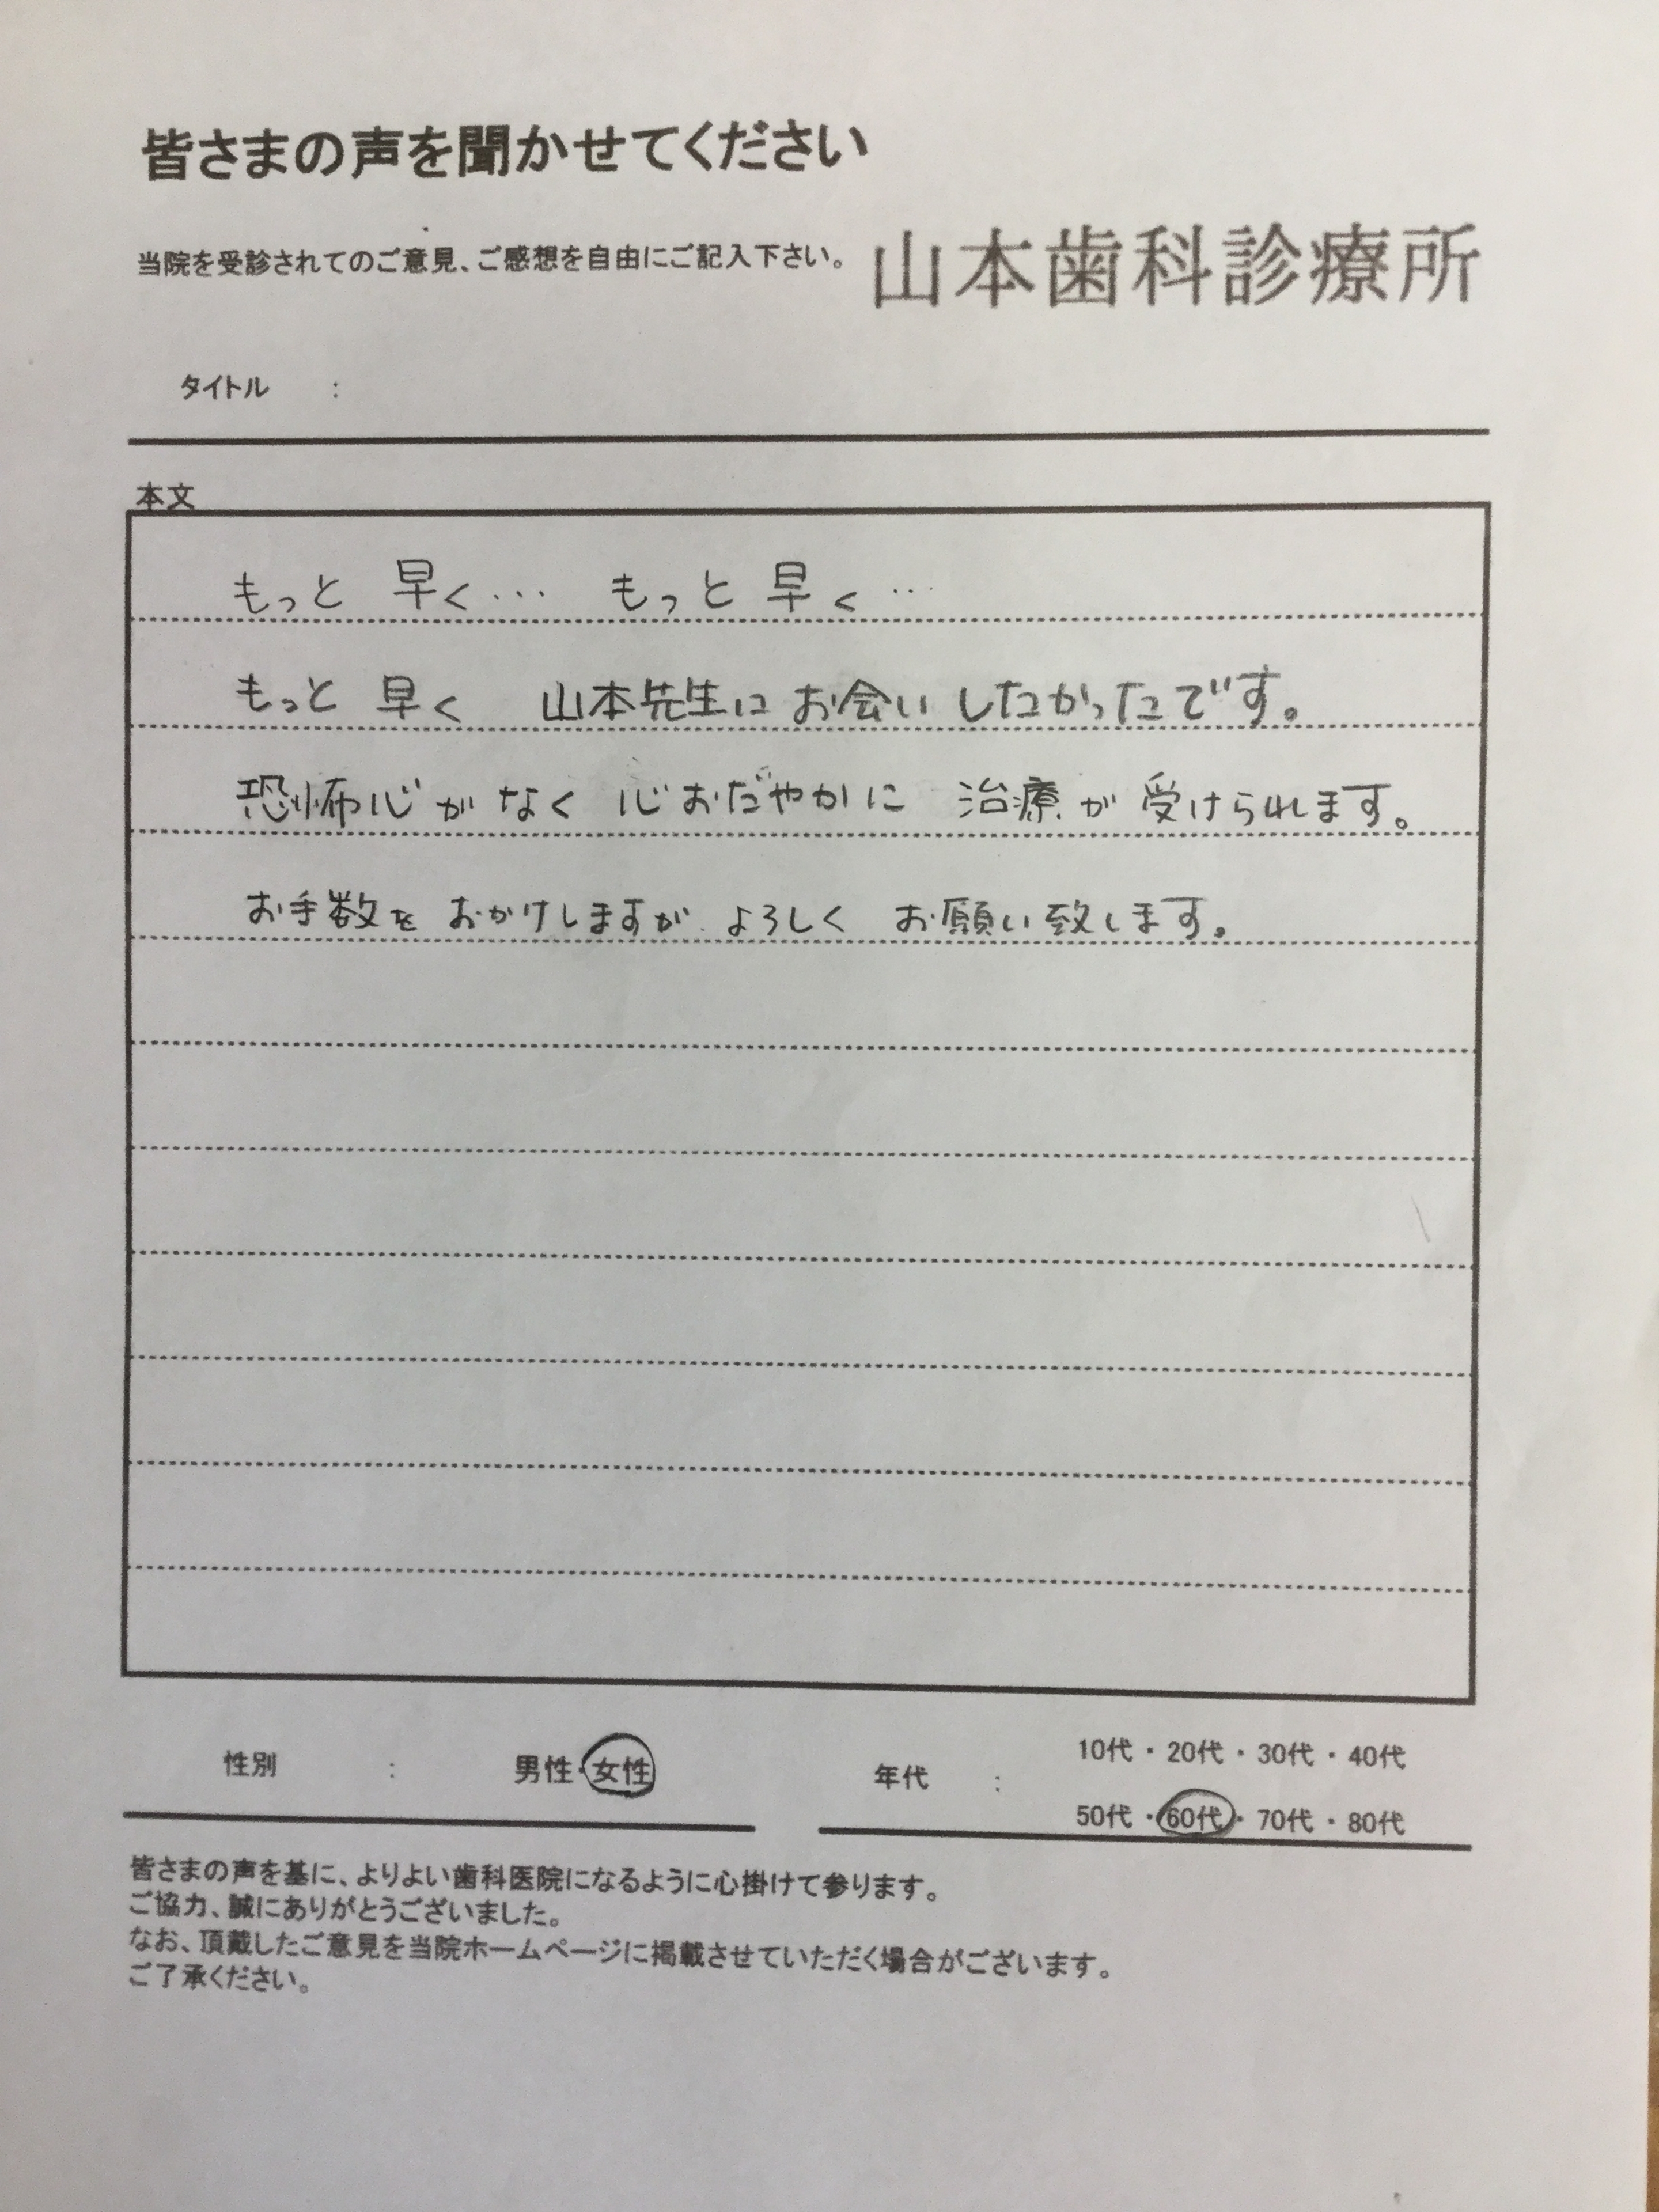 皆さまの声を聞かせてください
当院を受診されてのご意見、ご感想を自由にご記入下さい。 山本歯科診療所
タイトル :
本文
もっと 早く… もっと 早く…
もっと 早く 山本先生に お会いしたかったです。
恐怖心がなく 心おだやかに 治療が受けられます。
お手数を おかけしますが よろしく お願い致します。
性別 : 男性・女性
年代 : 10代・20代・30代・40代
50代・60代・70代・80代
皆さまの声を基に、よりよい歯科医院になるように心掛けて参ります。
ご協力、誠にありがとうございました。
なお、頂戴したご意見を当院ホームページに掲載させていただく場合がございます。
ご了承ください。